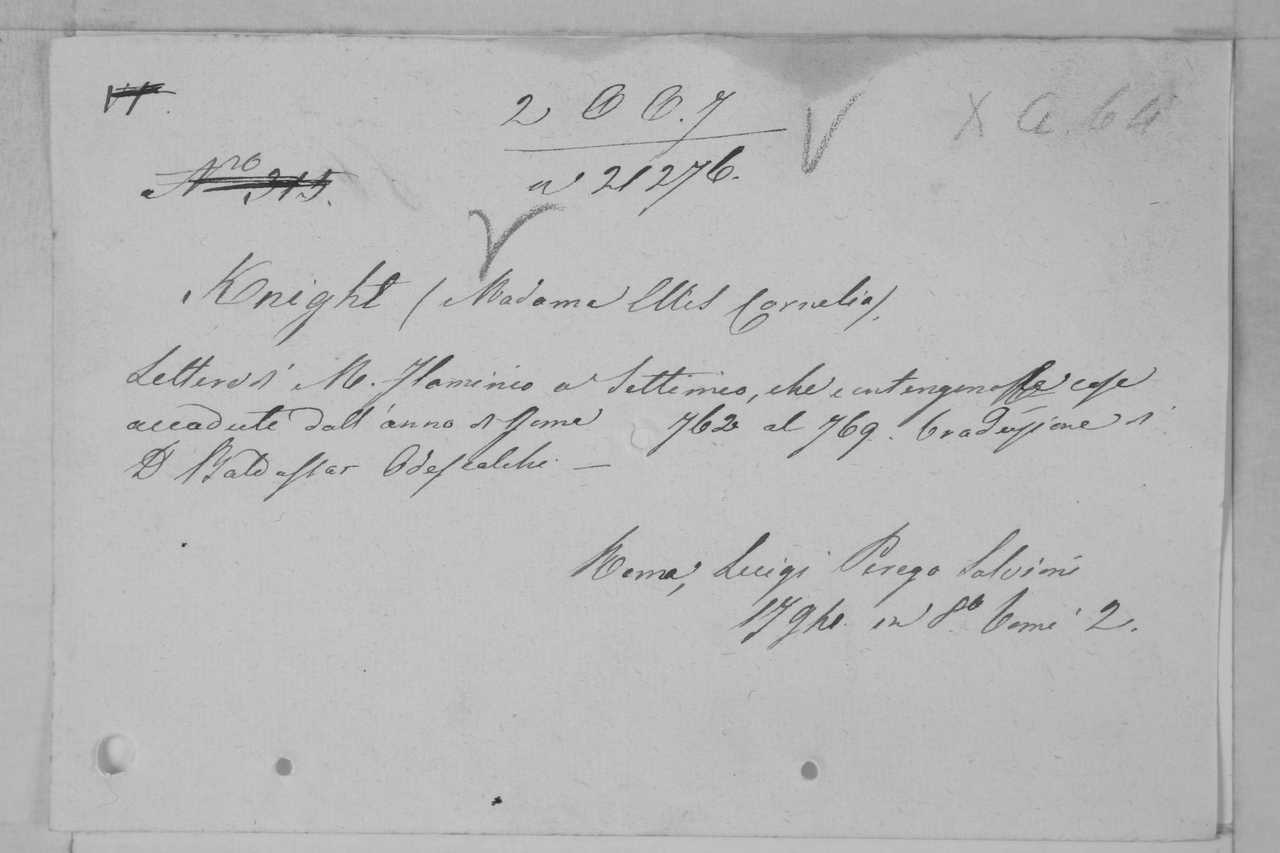 2 B B. 7
a 21 276.
X a. 64
Nro 315.
Knight (Madama Ellis Cornelia).
Lettere di M. Flaminio a Settimio, che contengono le cose
accadute dall'anno di Roma 762 al 769. Traduzione di
D Baldassar Odescalchi —
Roma, Luigi Perego Salvioni
1794. in 8º Tomi 2.